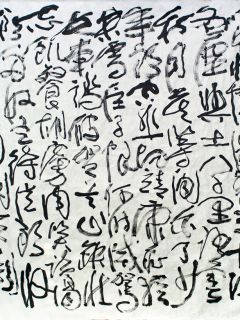 塵與土八千里路雲
和月莫等閒白了少
年頭空悲切靖康恥猶
未雪臣子恨何時滅駕
長車踏破賀蘭山缺壯
志飢餐胡虜肉笑談渴
飲匈奴血待從頭收